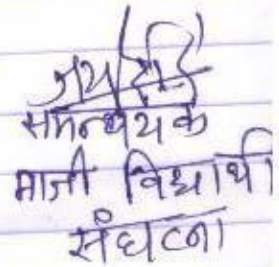 समन्वयक
माजी विद्यार्थी
संघटना